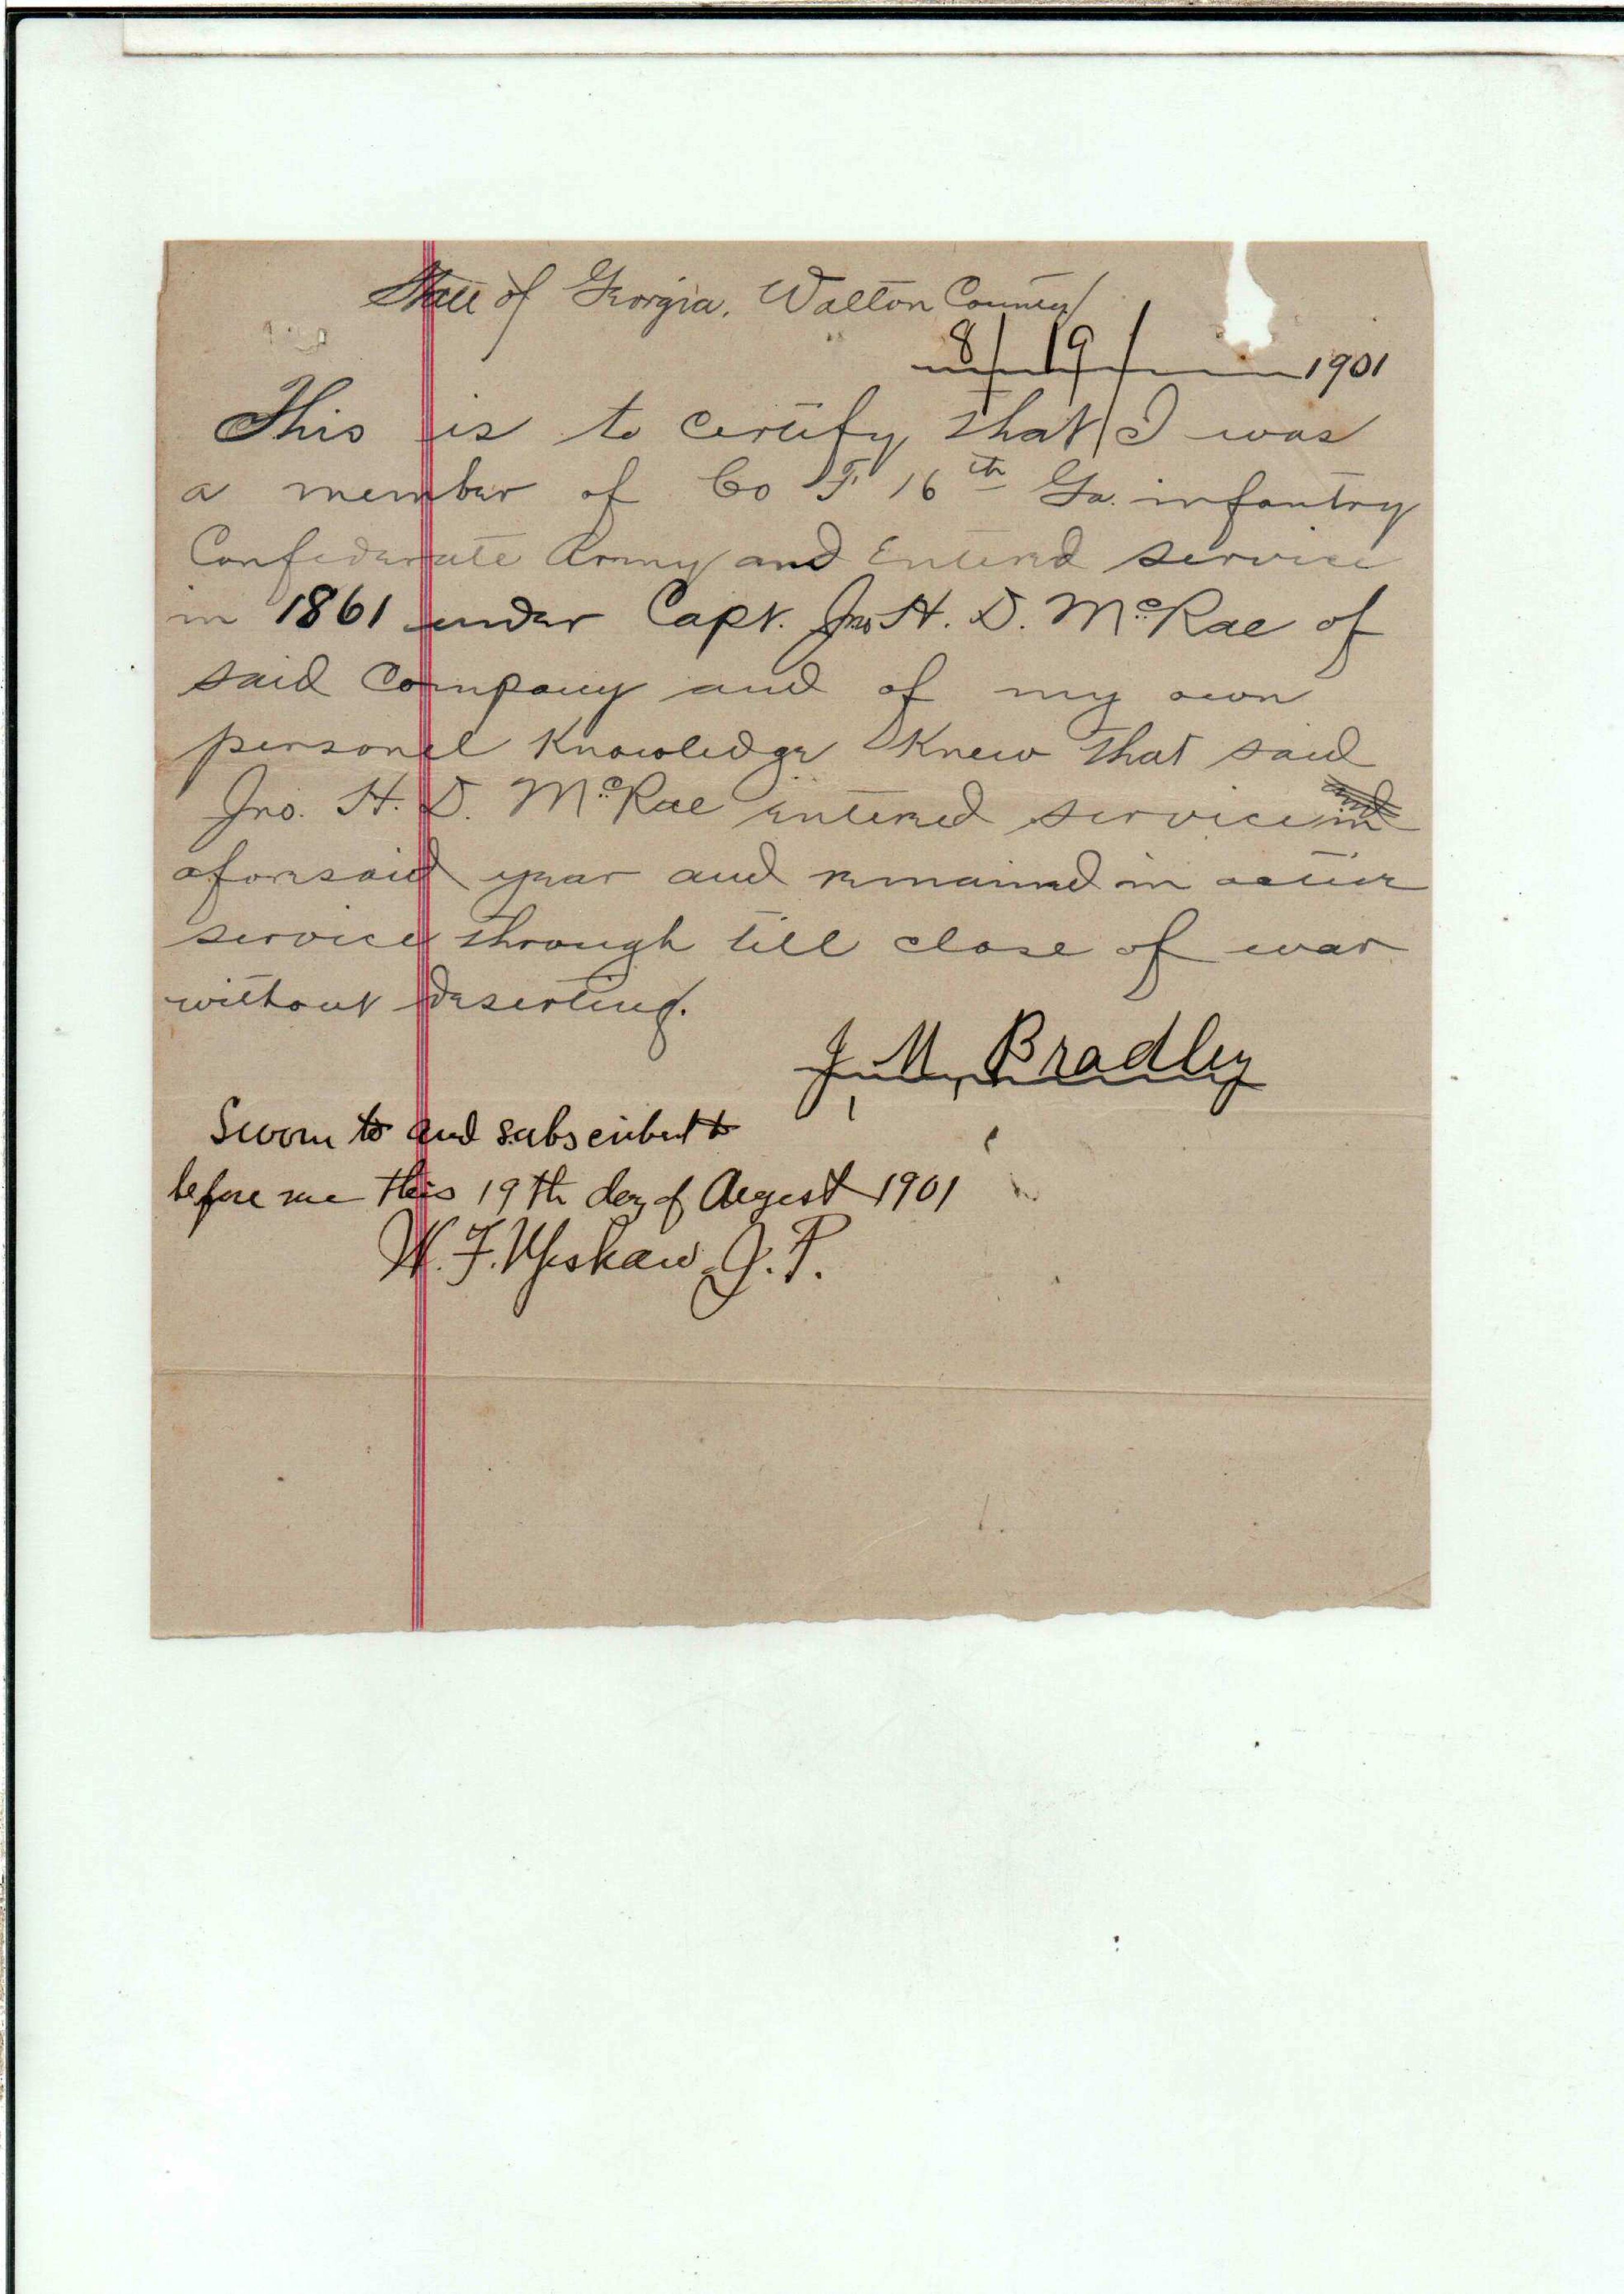 State of Georgia, Walton County
8/19/ 1901
This is to certify that I was
a member of Co F 16th Ga. infantry
Confederate Army and Entered service
in 1861 under Capt. Jno H. D. McRae of
said Company and of my own
personel Knowledge Knew that said
Jno. H. D. McRae entered service in
aforesaid year and remained in active
service through till close of war
without deserting.
J. M. Bradley
Sworn to and subscribed to
before me this 19th day of August 1901
W. F. J. P.